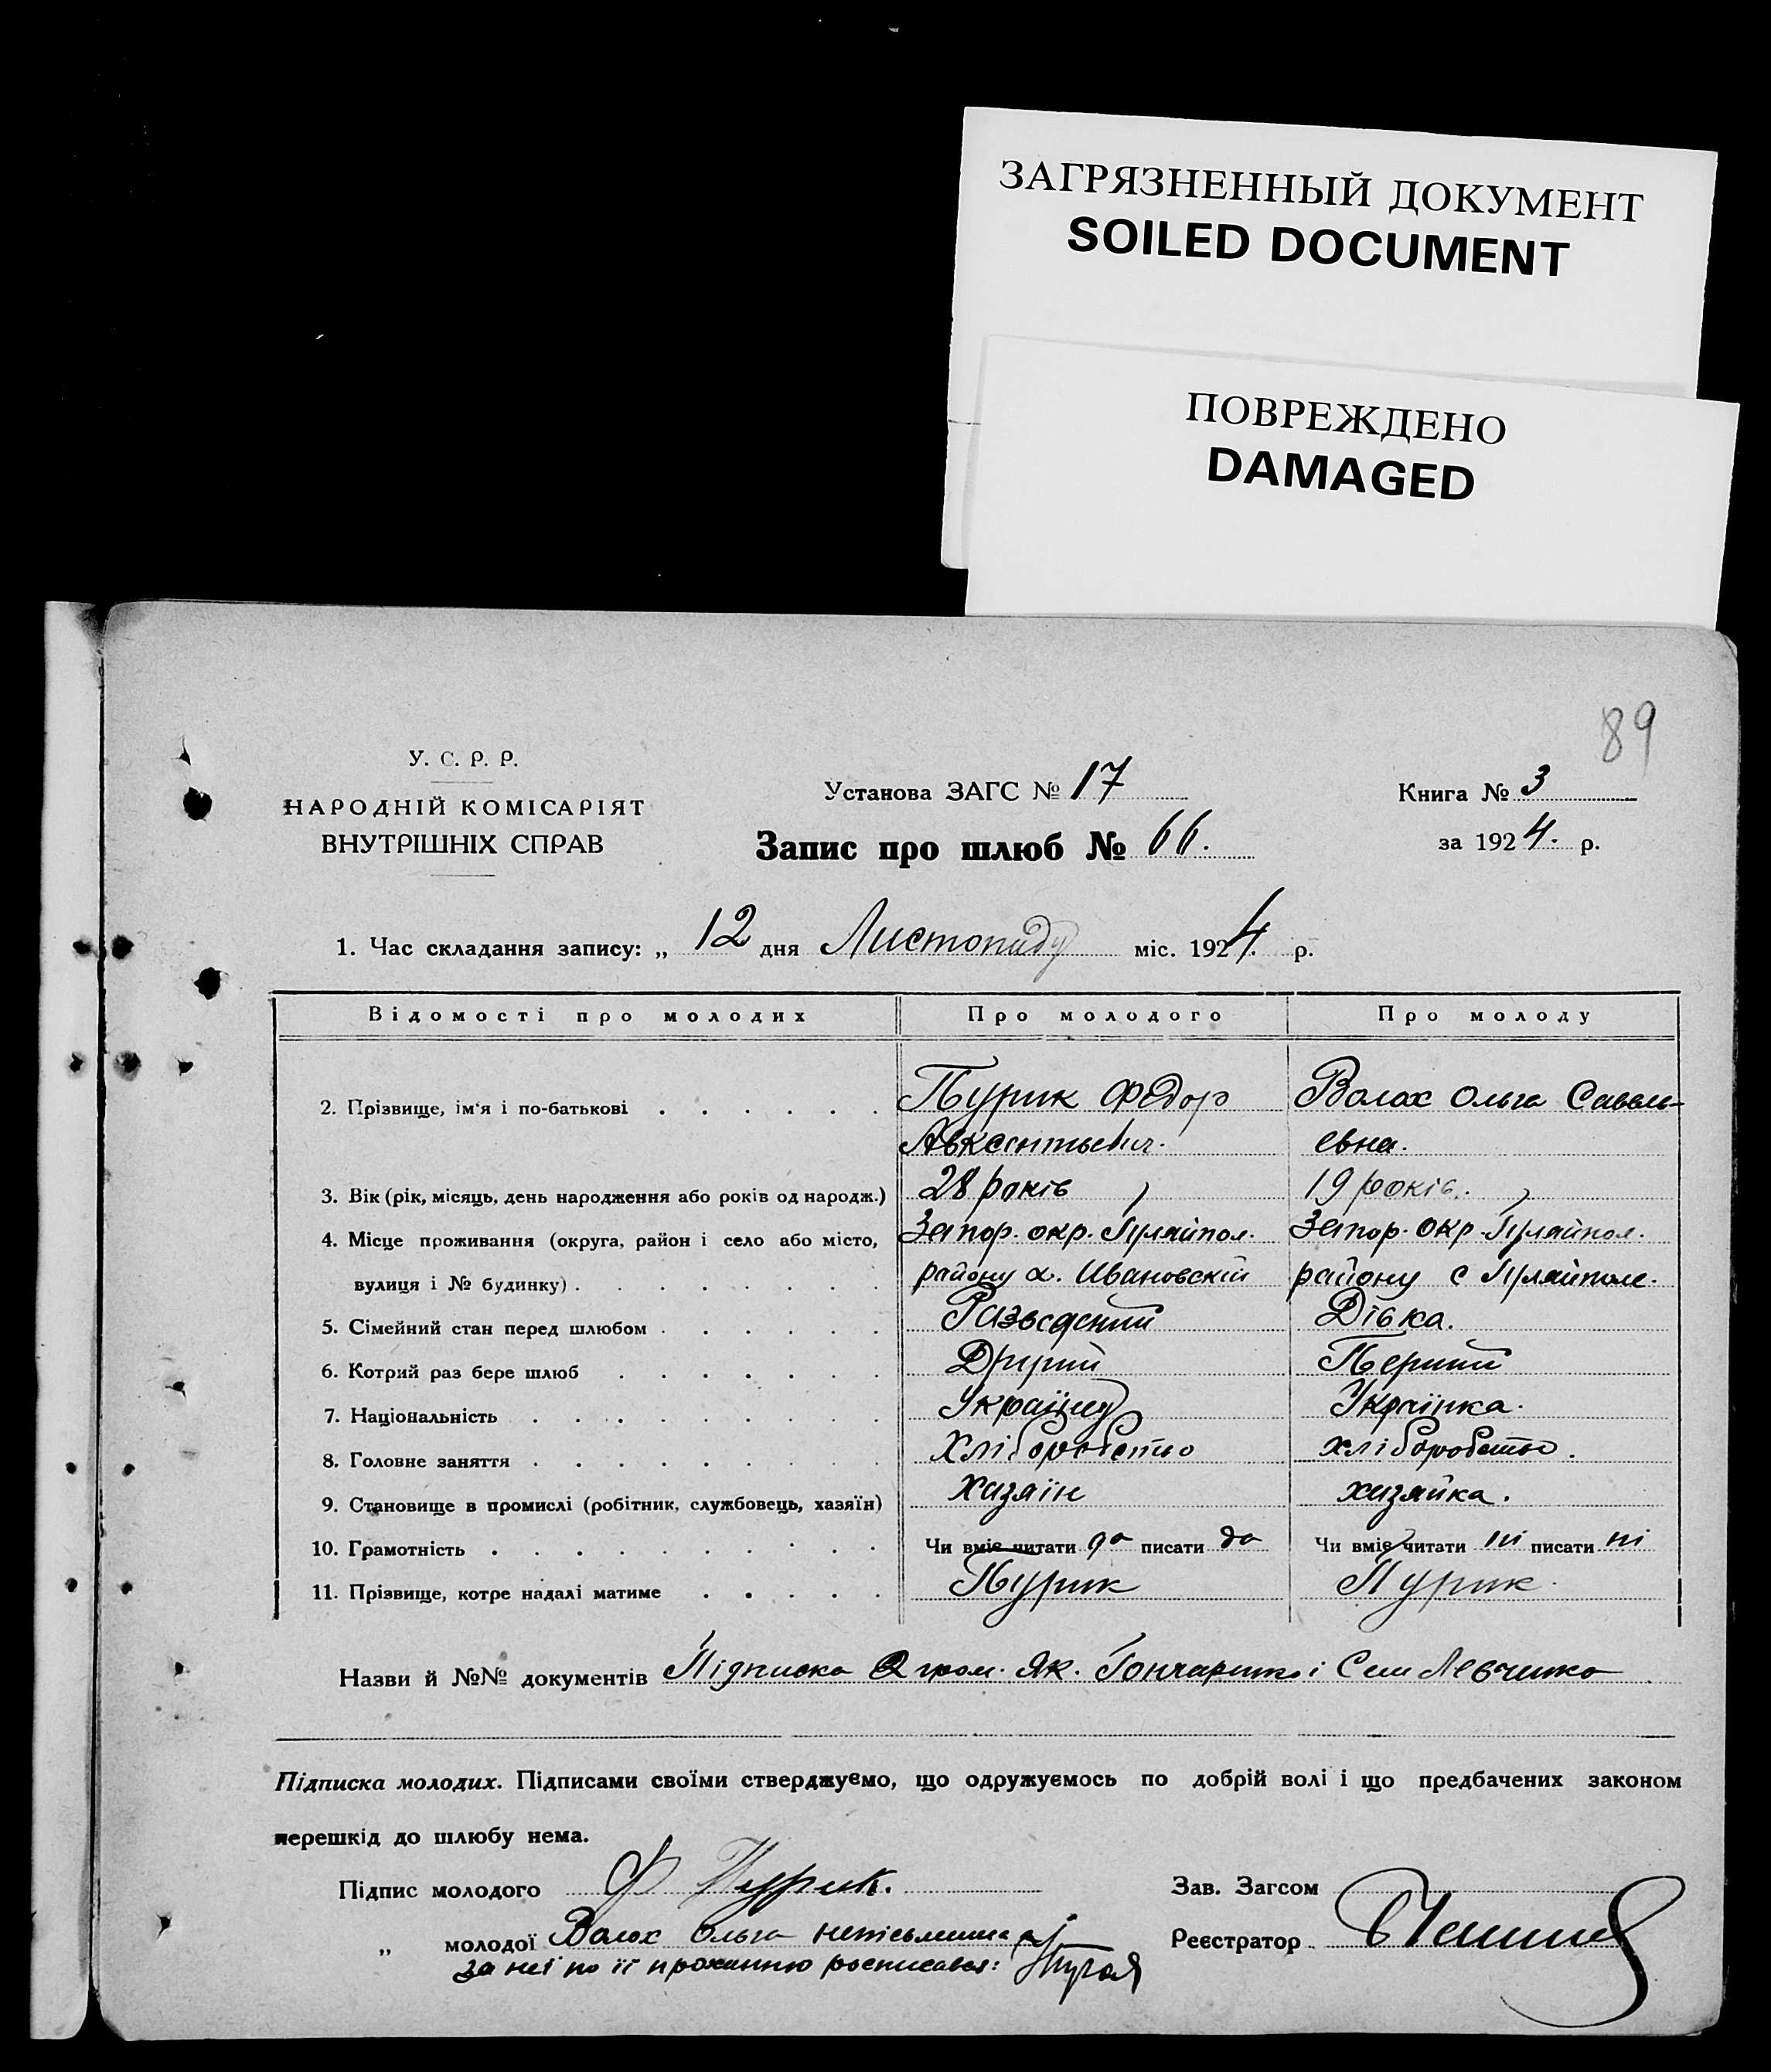 ЗАГРЯЗНЕННЫЙ ДОКУМЕНТ
SOILED DOCUMENT
ПОВРЕЖДЕНО
DAMAGED
89
У. С. Р. Р.
НАРОДНІЙ КОМІСАРІЯТ
ВНУТРІШНІХ СПРАВ
Установа ЗАГС № 17
Запис про шлюб № 66.
Книга № 3
за 1924. р.
1. Час складання запису: „ 12 дня Листопаду міс. 1924. р.
Відомості про молодих Про молодого Про молоду
2. Прізвище, ім'я і по-батькові Пурик Федор Волох Ольга Савель-
Авксентьевич. евна.
3. Вік (рік, місяць, день народження або років од народж.) 28 років 19 років.
4. Місце проживання (округа, район і село або місто, Запор. окр. Гуляйпол. Запор. окр. Гуляйпол.
вулиця і № будинку) району х. Ивановскій району с Гуляйполе.
5. Сімейний стан перед шлюбом Разведений Дівка.
6. Котрий раз бере шлюб Другий Перший
7. Національність Українец Українка.
8. Головне заняття Хліборобство хліборобство.
9. Становище в промислі (робітник, службовець, хазяїн) Хазяін хазяйка.
10. Грамотність Чи вміє читати да писати да Чи вміє читати ні писати ні
11. Прізвище, котре надалі матиме Пурик Пурик.
Назви й №№ документів Підписка 2 гром. Як. Гончаренко і Сем Левченко
Підписка молодих. Підписами своїми стверджуємо, що одружуємось по добрій волі і що предбачених законом
перешкід до шлюбу нема.
Підпис молодого Ф Пурик. Зав. Загсом
„ молодої Волох Ольга неписьменна Реєстратор
за неї по її проханню росписався: